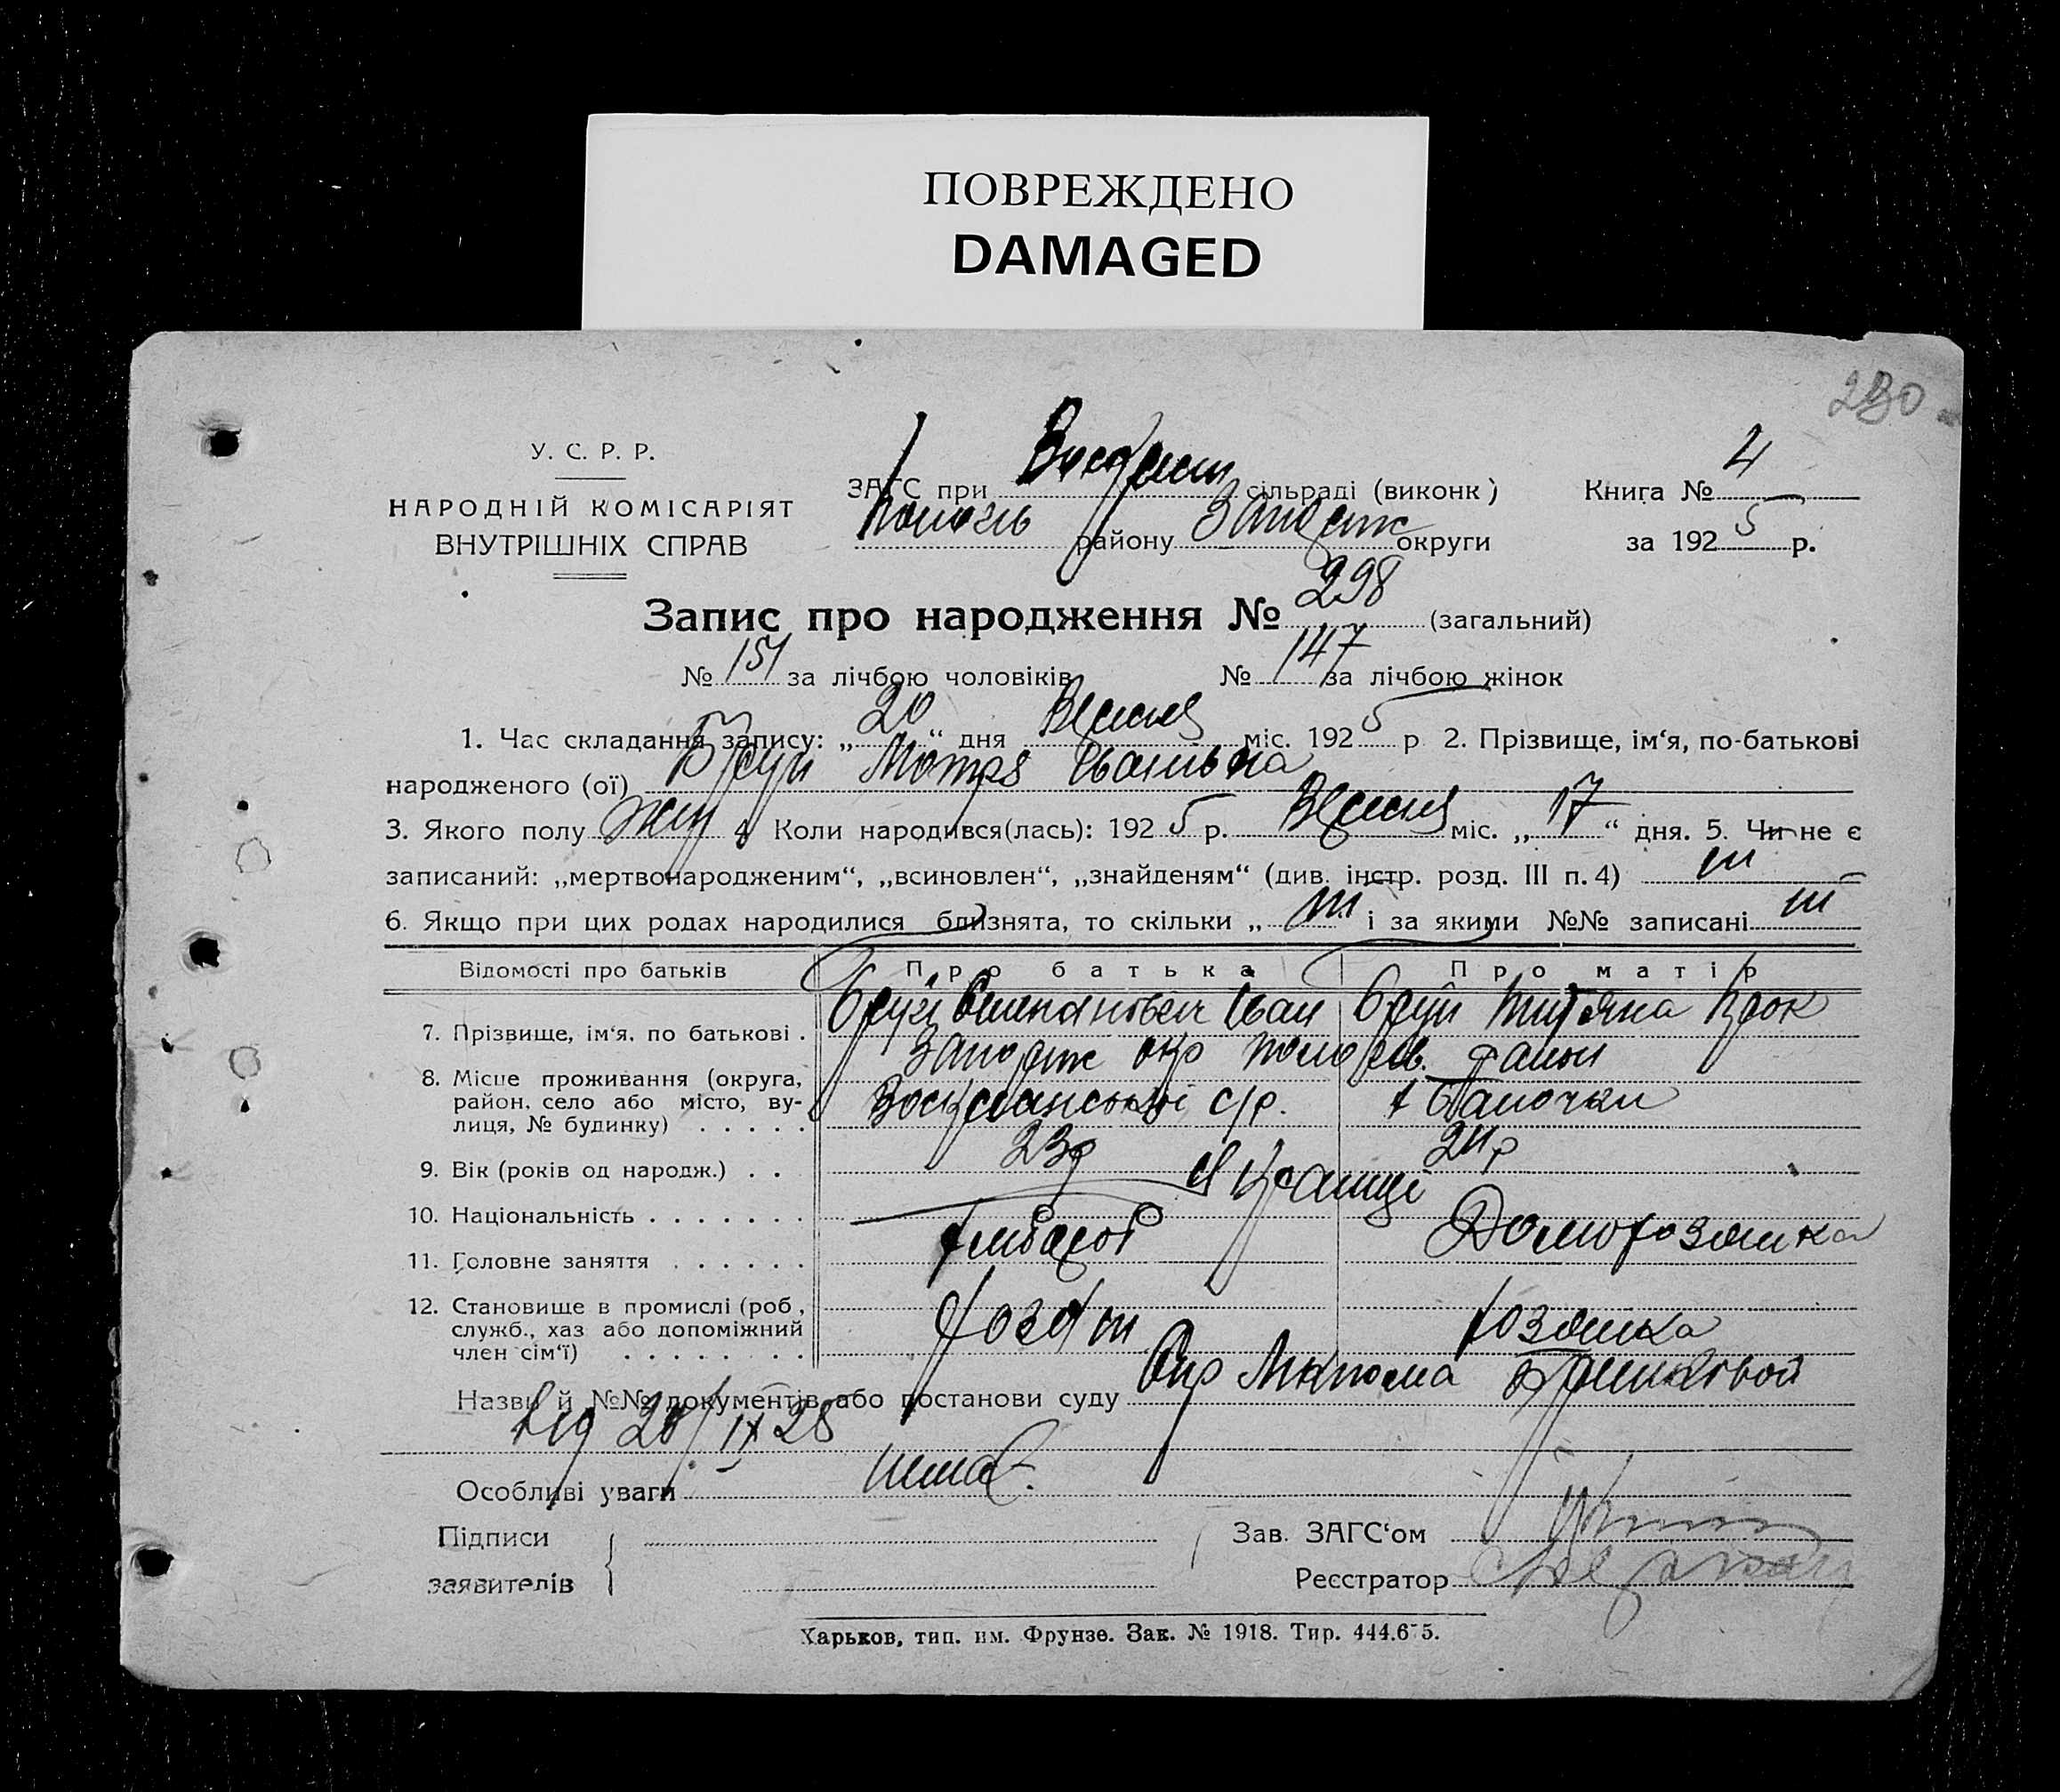 ПОВРЕЖДЕНО
DAMAGED
230
У. С. Р. Р.
НАРОДНІЙ КОМІСАРІЯТ
ВНУТРІШНІХ СПРАВ
ЗАГС при сільраді (виконк)
району Запоріж округи
Книга № 4
за 1925 р.
Запис про народження № 298 (загальний)
№ 151 за лічбою чоловіків № 147 за лічбою жінок
1. Час складання запису: „20“ дня Вересня міс. 1925 р 2. Прізвище, ім‘я, по-батькові
народженого (ої) Бруй Мотря Іванівна
3. Якого полу жін 4 Коли народився(лась): 1925 р. Вересня міс. „17“ дня. 5. Чи не є
записаний: „мертвонародженим“, „всиновлен“, „знайденям“ (див. інстр. розд. III п. 4)
6. Якщо при цих родах народилися близнята, то скільки „ і за якими №№ записані
Відомості про батьків Про батька Про матір
7. Прізвище, ім‘я, по батькові . Бруй Іван Бруй
8. Місце проживання (округа, Запоріж окр район
район, село або місто, ву- с/р.
лиця, № будинку) . . . . .
9. Вік (років од народж.) . . 23р 24р
10. Національність . . . . . . . Українці
11. Головне заняття . . . . . . хлібороб Домохозяйка
12. Становище в промислі (роб, хозяїн хозяйка
служб., хаз або допоміжний
член сім‘ї) . . . . . . . .
Назви й №№ документів або постанови суду
від 20/IX 25
Особливі уваги нема.
Підписи
заявителів
Зав. ЗАГС‘ом
Реєстратор
Харьков, тип. им. Фрунзе. Зак. № 1918. Тир. 444.675.